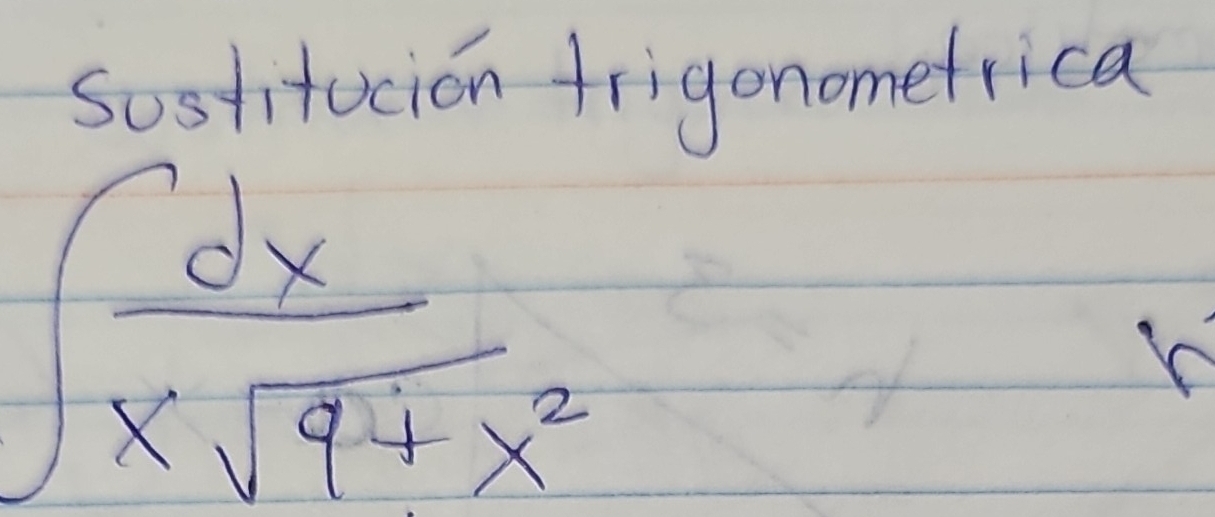 Sustitución trigonometrica
∫ dx
x √9 + x²
h